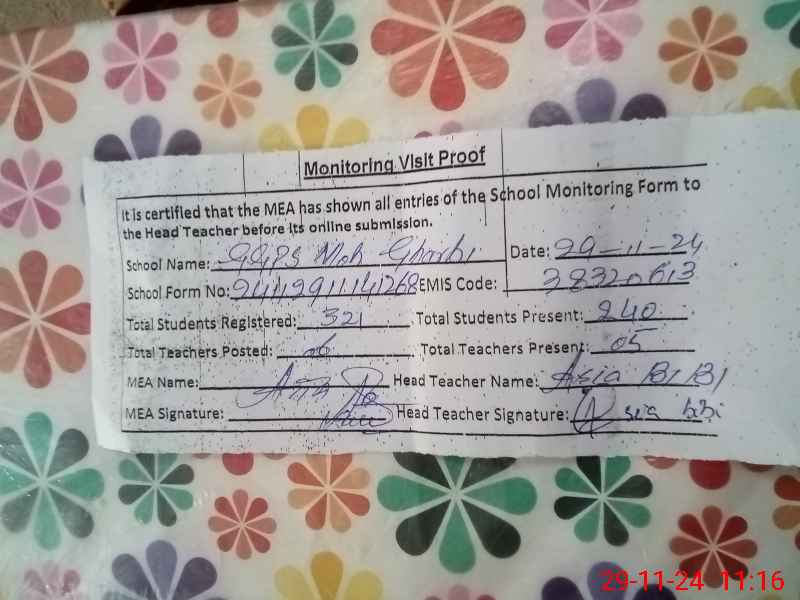 Monitoring Visit Proof
It is certified that the MEA has shown all entries of the School Monitoring Form to
the Head Teacher before its online submission.
School Name: GGPS Moh Gharbi Date: 29-11-24
School Form No: EMIS Code: 38320613
Total Students Registered: 321 Total Students Present: 240
Total Teachers Posted: 06 Total Teachers Present: 05
MEA Name: Head Teacher Name: Asia BiBi
MEA Signature: Head Teacher Signature: Asia bibi
29-11-24 11:16